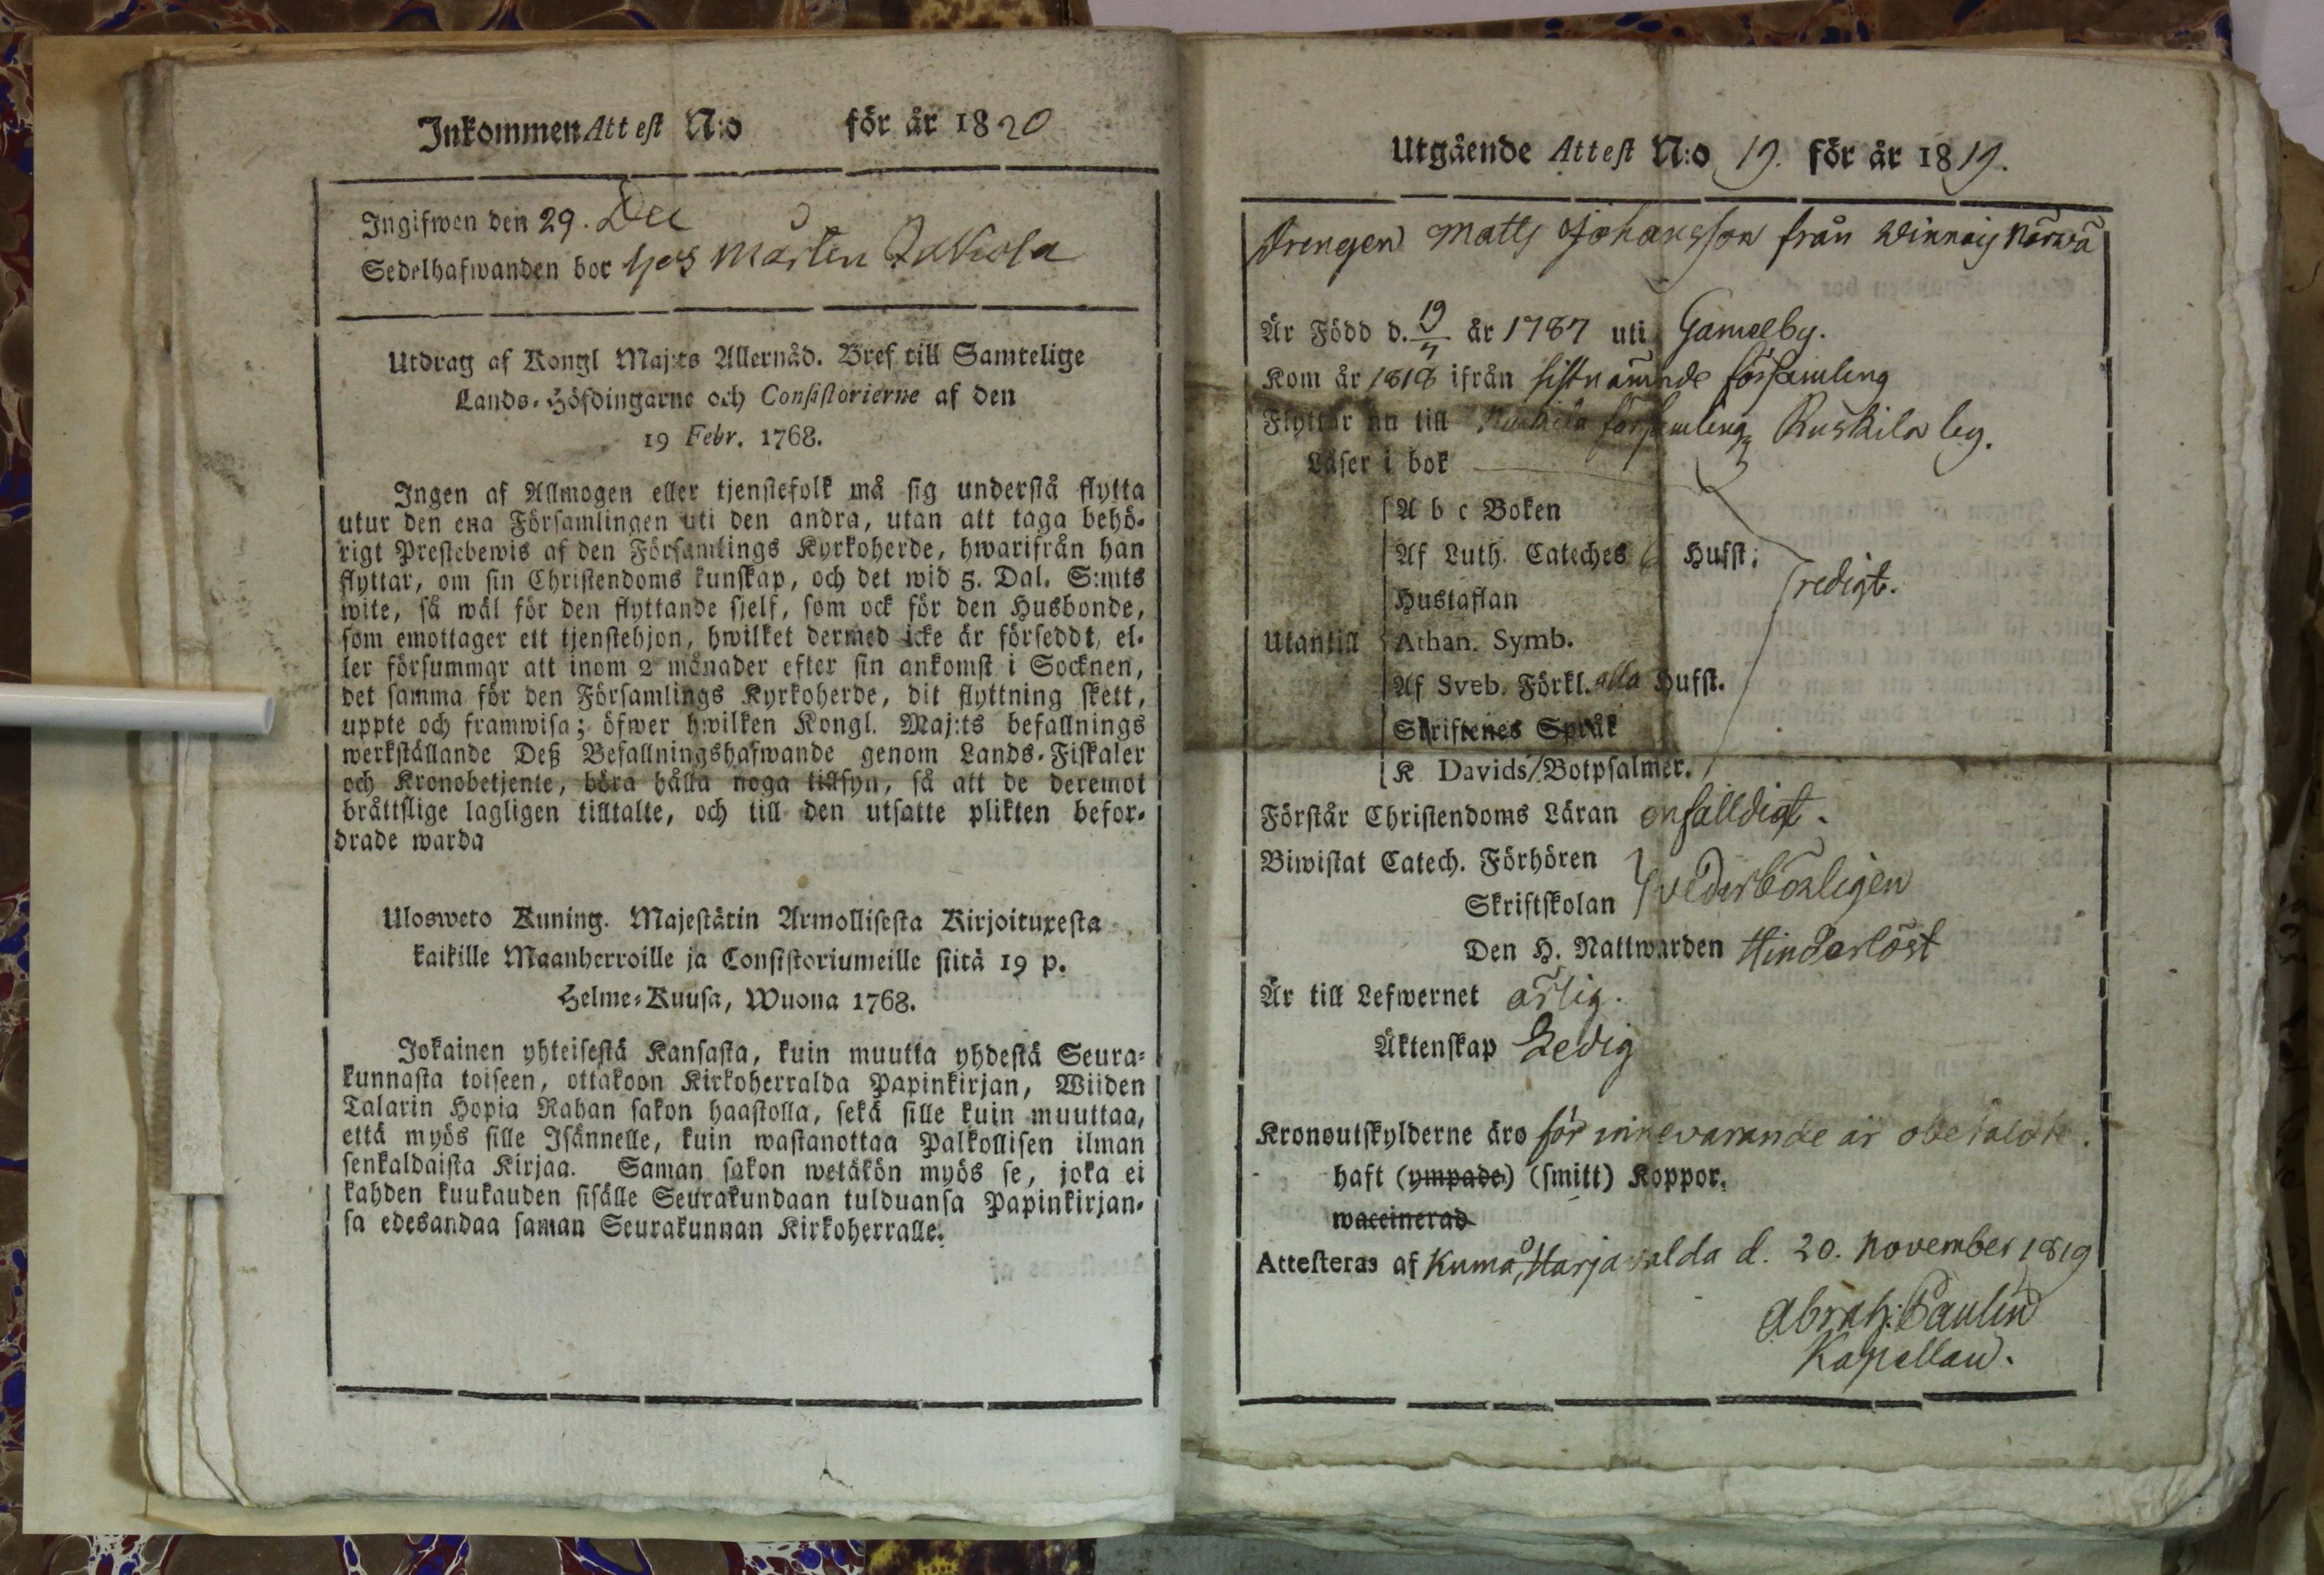 Inkommen Attest N:o för år 1820
Ingifwen den 29. Dec
Sedelhafwanden bor hos Mårten
Utdrag af Kongl Maj:ts Allernåd. Bref till Samtelige
Lands-Höfdingarne och Consistorierne af den
19 Febr. 1768.
Ingen af Allmogen eller tjenstefolk må sig understå flytta
utur den ena Församlingen uti den andra, utan att taga behö-
rigt Prestebewis af den Församlings Kyrkoherde, hwarifrån han
flyttar, om sin Christendoms kunskap, och det wid 5. Dal. S:mts
wite, så wäl för den flyttande sjelf, som ock för den Husbonde,
som emottager ett tjenstehjon, hwilket dermed icke är försedt, el-
ler försummar att inom 2 månader efter sin ankomst i Socknen,
det samma för den Församlings Kyrkoherde, dit flyttning skett,
uppte och framwisa; öfwer hwilken Kongl. Maj:ts befallnings
werkställande Deß Befallningshafwande genom Lands-Fiskaler
och Kronobetjente, böra hålla noga tillsyn, så att de deremot
bråttslige lagligen tilltalte, och till den utsatte plikten befor-
drade warda
Ulosweto Kuning. Majestätin Armollisesta Kirjoituxesta
kaikille Maanherroille ja Consistoriumeille siitä 19 p.
Helme-Kuusa, Wuona 1768.
Jokainen yhteisestä Kansasta, kuin muutta yhdestä Seura-
kunnasta toiseen, ottakoon Kirkoherralda Papinkirjan, Wiiden
Talarin Hopia Rahan sakon haastolla, sekä sille kuin muuttaa,
että myös sille Isännelle, kuin wastanottaa Palkollisen ilman
senkaldaista Kirjaa. Saman sakon wetäkön myös se, joka ei
kahden kuukauden sisälle Seurakundaan tulduansa Papinkirjan-
sa edesandaa saman Seurakunnan Kirkoherralle.
Utgående Attest N:o 19. för år 1819.
Drengen Matts Johansson från Winnais Närwä
Är Född d. 19/7 år 1787 uti Gamelby.
Kom år 1818 ifrån sistnämnde församling
Flyttar nu till församling Ruskila by.
Läser i bok
A b c Boken
Af Luth. Cateches 6 Hufst;
Hustaflan redigt.
Utantill Athan. Symb.
Af Sveb. Förkl. alla Hufst.
Skriftenes Språk
K Davids 7. Botpsalmer.
Förstår Christendoms Läran enfalldigt.
Biwistat Catech. Förhören
Skriftskolan vederbörligen
Den H. Nattwarden Hinderlöst
Är till Lefwernet ärlig.
Äktenskap Ledig
Kronoutskylderne äro för innevarande år obetaldte.
haft (ympade) (smitt) Koppor.
waccinerad
Attesteras af Kumå, Harjavalda d. 20. November 1819
Abrah: Paulin
Kapellan.